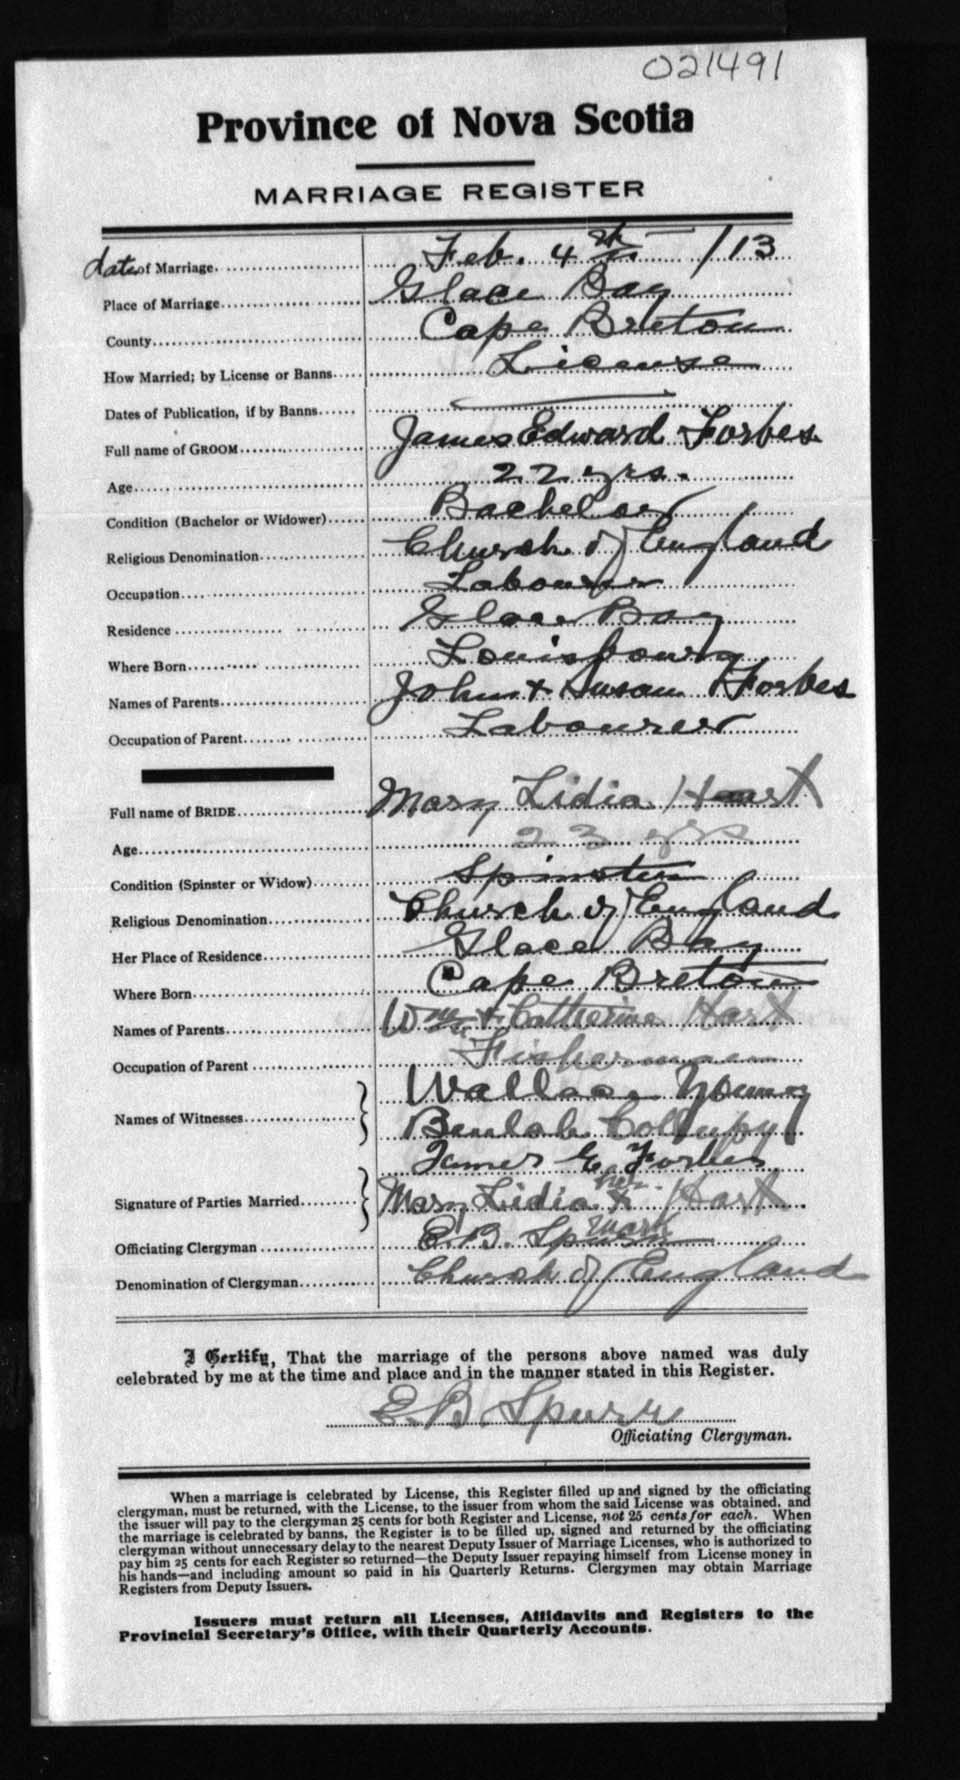 021491
Province of Nova Scotia
MARRIAGE REGISTER
date of Marriage Feb. 4th /13
Place of Marriage Glace Bay
County Cape Breton
How Married; by License or Banns License
Dates of Publication, if by Banns
Full name of GROOM James Edward Forbes
Age 22 yrs.
Condition (Bachelor or Widower) Bachelor
Religious Denomination Church of England
Occupation Labourer
Residence Glace Bay
Where Born Louisbourg
Names of Parents John + Susan Forbes
Occupation of Parent Labourer
Full name of BRIDE Mary Lidia Hart
Age 23 yrs
Condition (Spinster or Widow) Spinster
Religious Denomination Church of England
Her Place of Residence Glace Bay
Where Born Cape Breton
Names of Parents Wm + Catherine Hart
Occupation of Parent Fisherman
Names of Witnesses Wallace Young
Beulah
James E. Forbes
Signature of Parties Married Mary Lidia her x mark Hart
Officiating Clergyman E. B. Spurr
Denomination of Clergyman Church of England
I Certify, That the marriage of the persons above named was duly
celebrated by me at the time and place and in the manner stated in this Register.
E. B. Spurr
Officiating Clergyman.
When a marriage is celebrated by License, this Register filled up and signed by the officiating
clergyman, must be returned, with the License, to the issuer from whom the said License was obtained, and
the issuer will pay to the clergyman 25 cents for both Register and License, not 25 cents for each. When
the marriage is celebrated by banns, the Register is to be filled up, signed and returned by the officiating
clergyman without unnecessary delay to the nearest Deputy Issuer of Marriage Licenses, who is authorized to
pay him 25 cents for each Register so returned—the Deputy Issuer repaying himself from License money in
his hands—and including amount so paid in his Quarterly Returns. Clergymen may obtain Marriage
Registers from Deputy Issuers.
Issuers must return all Licenses, Affidavits and Registers to the
Provincial Secretary's Office, with their Quarterly Accounts.